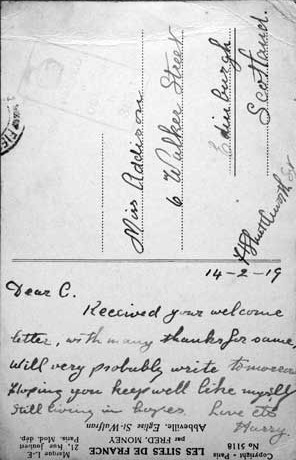 Miss Addison
6 Walker Street
Edinburgh
Scotland.
14-2-19
Dear C.
Received your welcome
letter, with many thanks for same,
Will very probably write tomorrow
Hoping you keep well like myself
Still living in hopes. Love etc
Harry.
LES SITES DE FRANCE
par FRED. MONEY
Abbeville Eglise St-Wulfran
Copyright - Paris
No 5118
Marque L-E
21, rue Joubert
Paris. Mod. dép.
FIE